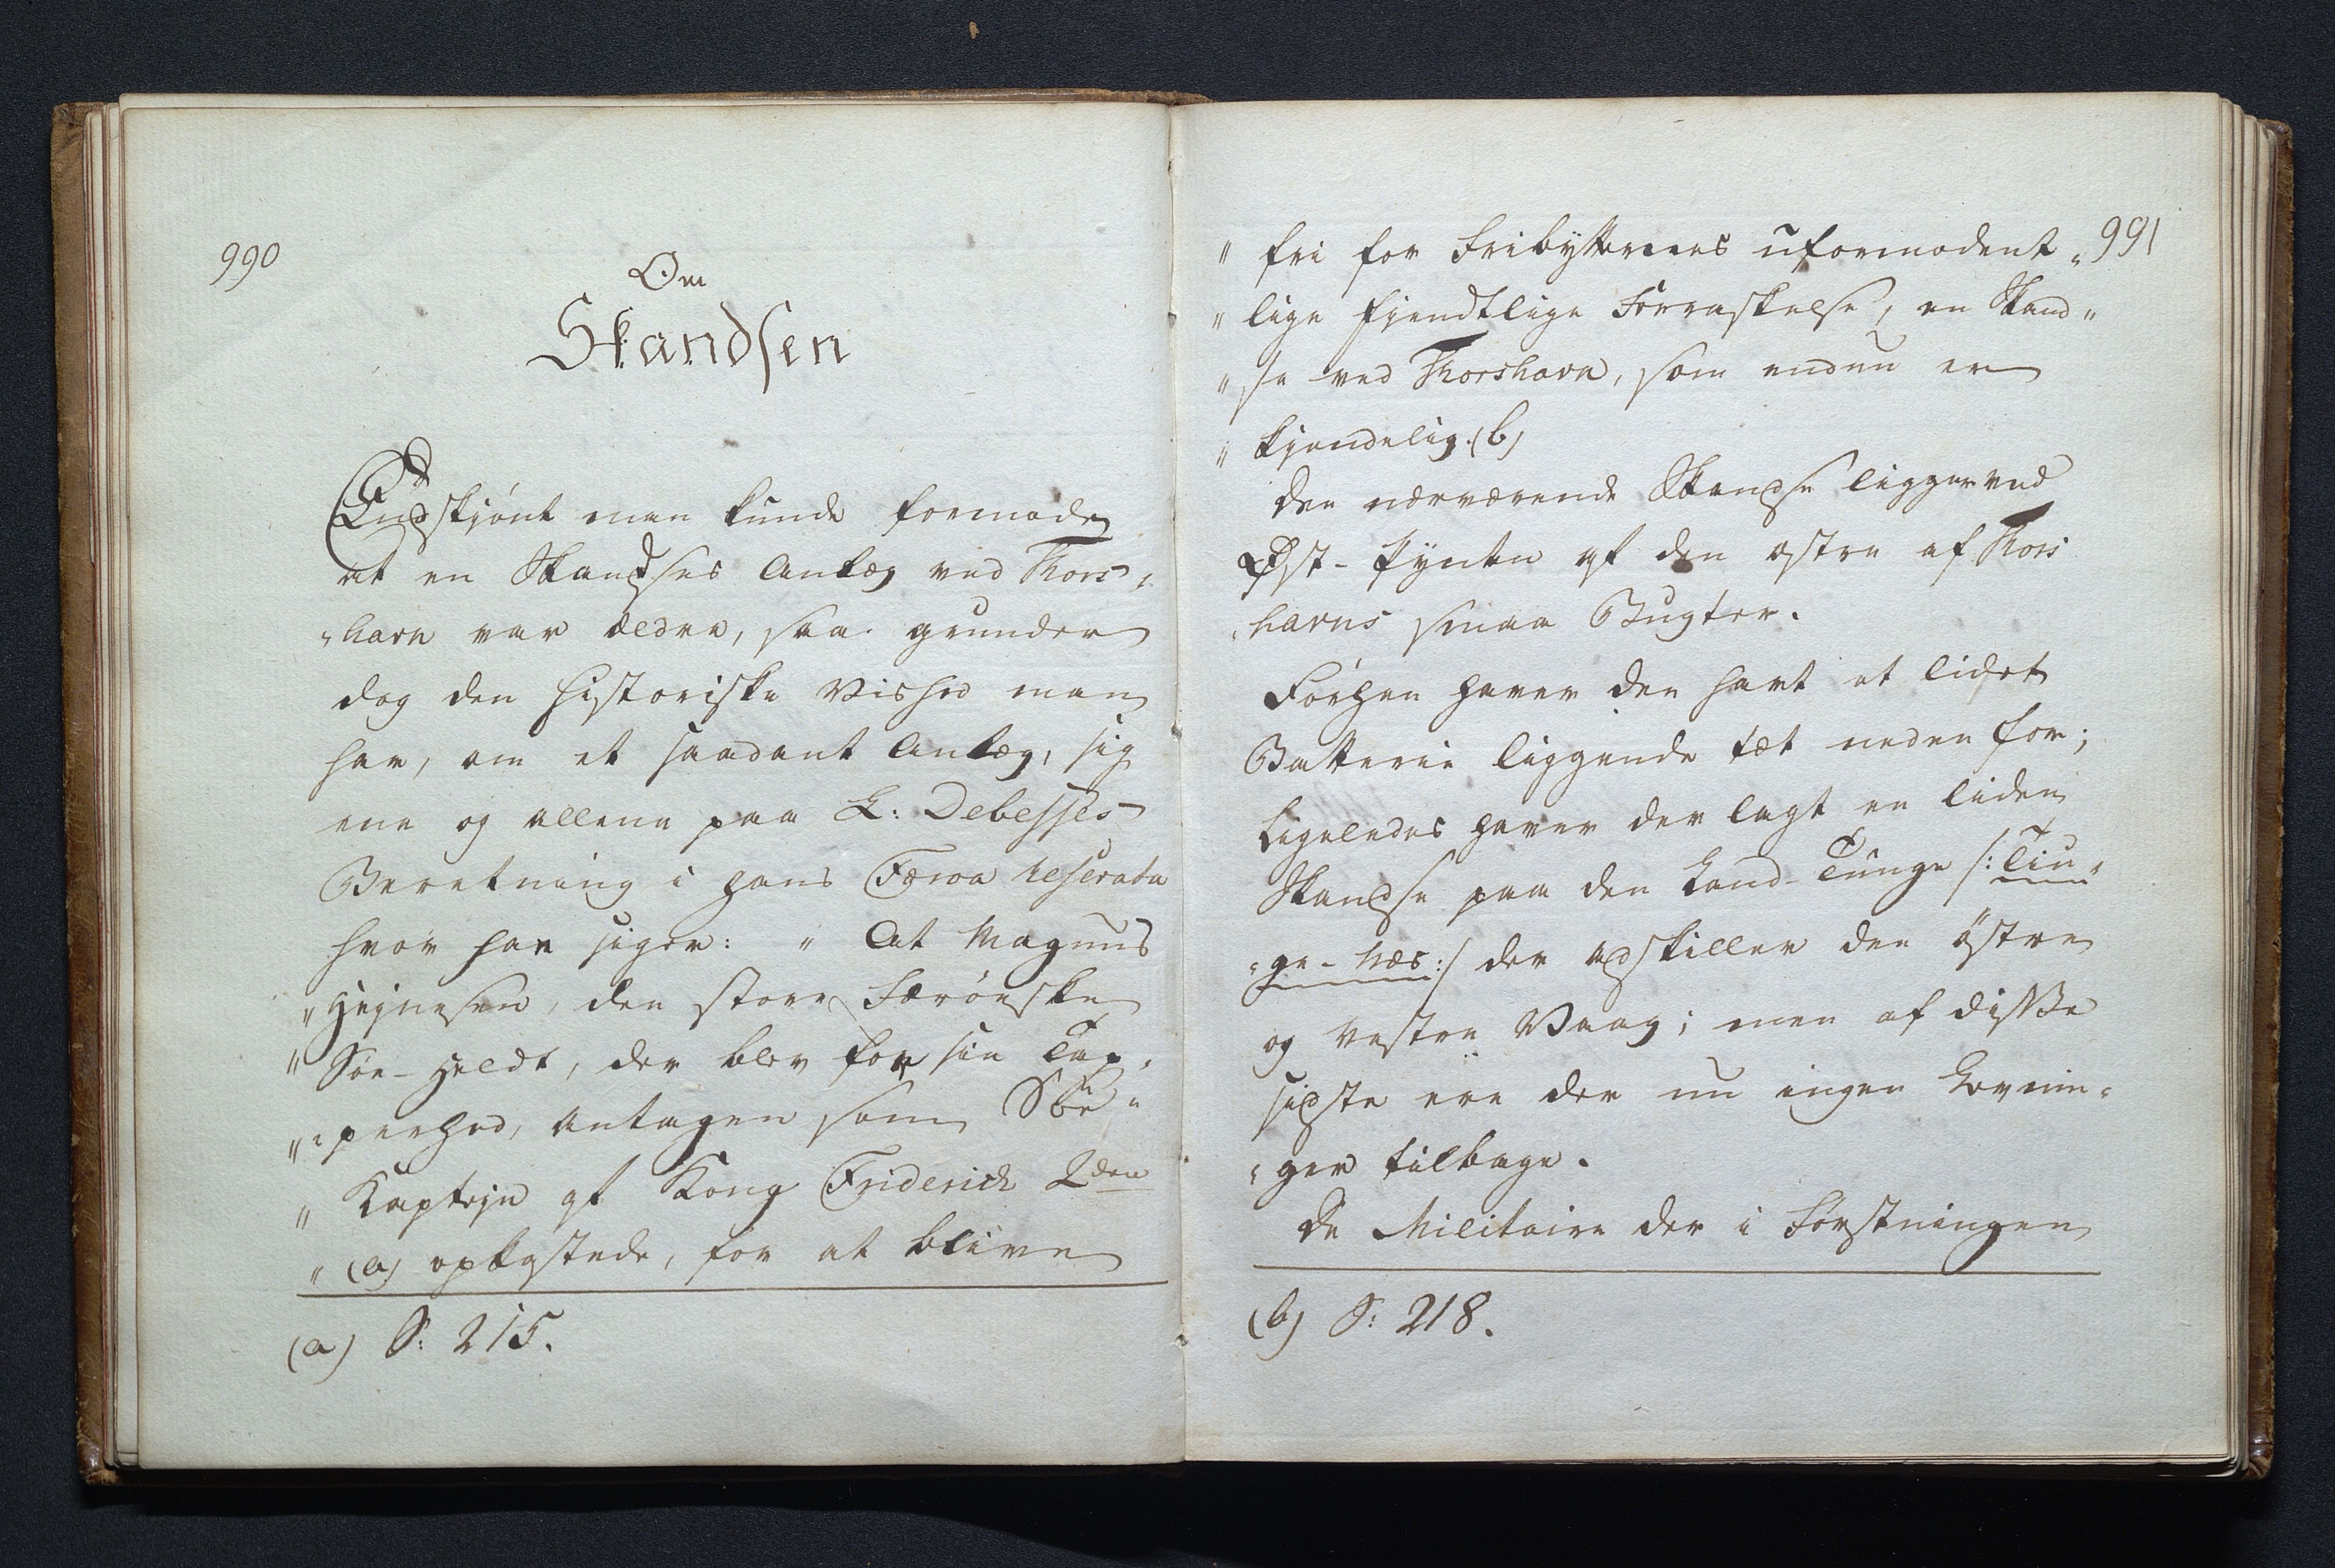 990
Om
Skandsen
Endskjønt man kunde formode
at en Skandses Anlæg ved Thors„
„havn var ældre, saa grunder
dog den historiske Vished man
har, om et saadant Anlæg, sig
ene og allene paa L: Debesses
Beretning i hans Færoa reserata
hvor han siger: „ At Magnus
„Hejnesen, den store Færöeske
„ Söe-Heldt, der blev for sin Tap„
„„perhed, antagen som Söe„
„ Kaptejn af Kong Friderich 2den
„ (a) opkastede, for at blive
(a) S: 215.
991
„ fri for Fribytternes uformodent„
„ lige fjendtlige Forraskelse, en Skand„
„ se ved Thorshavn, som endnu er
„ kjendelig. (b)
Den nærværende Skandse ligger ved
Øst-Pynten af den østre af Thors
„havns smaa Bugter.
Forhen haver den havt et lidet
Batterie liggende tæt neden for;
Ligeledes haver der lagt en liden
Skandse paa den Land-Tunge /: Tin„
„ge-Næs :/ der adskiller den östre
og vestre Vaag; men af disse
sidste ere der nu ingen Levnin„
„ger tilbage.
De Militaire der i Førstningen
(b) S: 218.